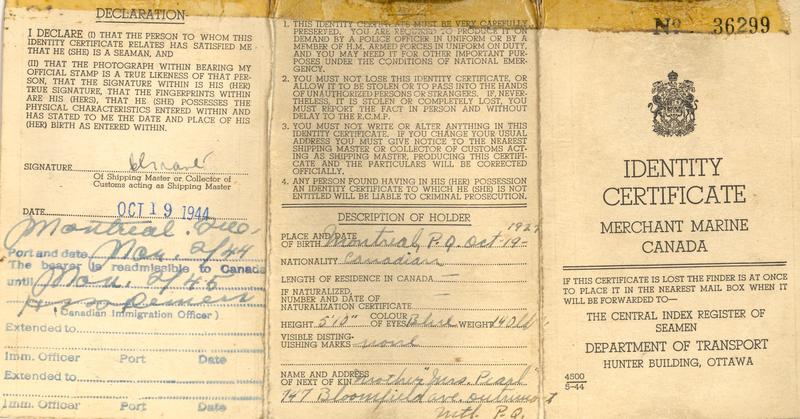 DECLARATION
I DECLARE (I) THAT THE PERSON TO WHOM THIS
IDENTITY CERTIFICATE RELATES HAS SATISFIED ME
THAT HE (SHE) IS A SEAMAN, AND
(II) THAT THE PHOTOGRAPH WITHIN BEARING MY
OFFICIAL STAMP IS A TRUE LIKENESS OF THAT PER-
SON, THAT THE SIGNATURE WITHIN IS HIS (HER)
TRUE SIGNATURE, THAT THE FINGERPRINTS WITHIN
ARE HIS (HERS), THAT HE (SHE) POSSESSES THE
PHYSICAL CHARACTERISTICS ENTERED WITHIN AND
HAS STATED TO ME THE DATE AND PLACE OF HIS
(HER) BIRTH AS ENTERED WITHIN.
SIGNATURE
Of Shipping Master or Collector of
Customs acting as Shipping Master
DATE OCT 19 1944
Montreal. Que.
Port and date Nov. 2/44
The bearer is readmissible to Canada
until Nov. 2/45
(Canadian Immigration Officer)
Extended to
Imm. Officer Port Date
Extended to
Imm. Officer Port Date
1. THIS IDENTITY CERTIFICATE MUST BE VERY CAREFULLY
PRESERVED. YOU ARE REQUIRED TO PRODUCE IT ON
DEMAND BY A POLICE OFFICER IN UNIFORM OR BY A
MEMBER OF H.M. ARMED FORCES IN UNIFORM ON DUTY,
AND YOU MAY NEED IT FOR OTHER IMPORTANT PUR-
POSES UNDER THE CONDITIONS OF NATIONAL EMER-
GENCY.
2. YOU MUST NOT LOSE THIS IDENTITY CERTIFICATE, OR
ALLOW IT TO BE STOLEN OR TO PASS INTO THE HANDS
OF UNAUTHORIZED PERSONS OR STRANGERS. IF, NEVER-
THELESS, IT IS STOLEN OR COMPLETELY LOST, YOU
MUST REPORT THE FACT IN PERSON AND WITHOUT
DELAY TO THE R.C.M.P.
3. YOU MUST NOT WRITE OR ALTER ANYTHING IN THIS
IDENTITY CERTIFICATE. IF YOU CHANGE YOUR USUAL
ADDRESS YOU MUST GIVE NOTICE TO THE NEAREST
SHIPPING MASTER OR COLLECTOR OF CUSTOMS ACT-
ING AS SHIPPING MASTER, PRODUCING THIS CERTIFI-
CATE AND THE PARTICULARS WILL BE CORRECTED
OFFICIALLY.
4. ANY PERSON FOUND HAVING IN HIS (HER) POSSESSION
AN IDENTITY CERTIFICATE TO WHICH HE (SHE) IS NOT
ENTITLED WILL BE LIABLE TO CRIMINAL PROSECUTION.
DESCRIPTION OF HOLDER
PLACE AND DATE
OF BIRTH Montreal, P.Q. Oct-19-
NATIONALITY Canadian
LENGTH OF RESIDENCE IN CANADA —
IF NATURALIZED,
NUMBER AND DATE OF
NATURALIZATION CERTIFICATE —
HEIGHT 5'10" COLOUR OF EYES Blue WEIGHT
VISIBLE DISTING-
UISHING MARKS none
NAME AND ADDRESS
OF NEXT OF KIN Mother "Mrs. Pearl"
747 Bloomfield ave. Outremont
Mtl. P.Q.
No 36299
IDENTITY
CERTIFICATE
MERCHANT MARINE
CANADA
IF THIS CERTIFICATE IS LOST THE FINDER IS AT ONCE
TO PLACE IT IN THE NEAREST MAIL BOX WHEN IT
WILL BE FORWARDED TO—
THE CENTRAL INDEX REGISTER OF
SEAMEN
DEPARTMENT OF TRANSPORT
HUNTER BUILDING, OTTAWA
4500
5-44